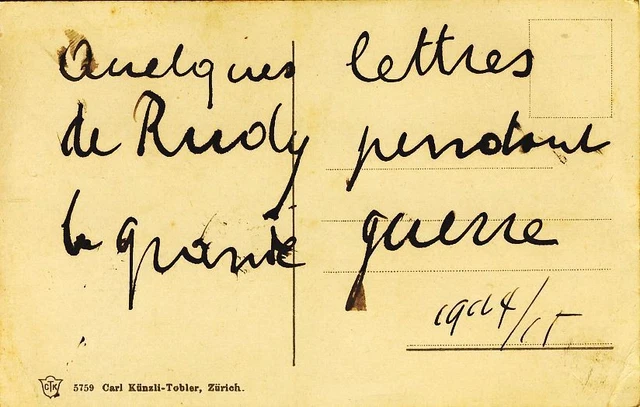 Quelques lettres
de Rudy pendant
la grande guerre
1914/15
CTK 5759 Carl Künzli-Tobler, Zürich.